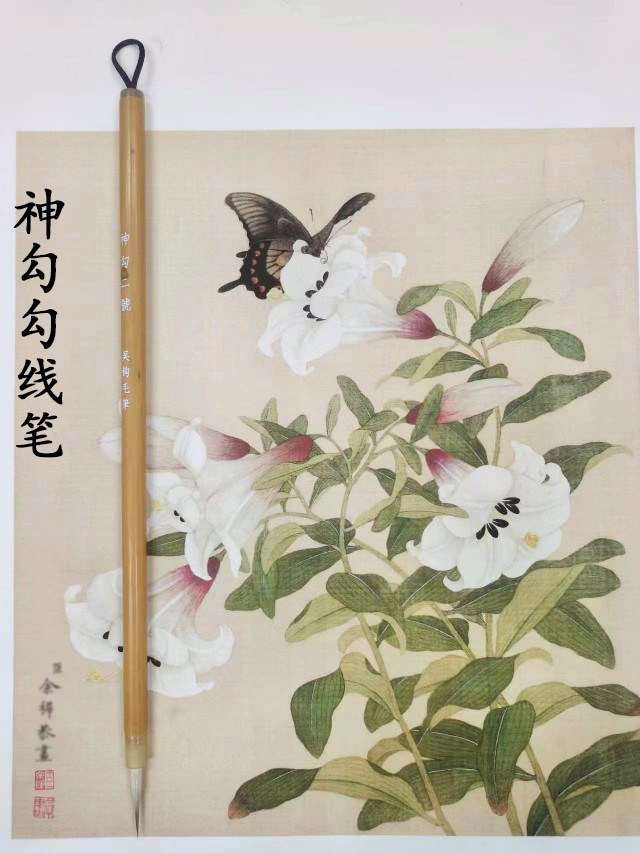 神勾勾线笔
神勾二號
吴钩毛筆
臣余穉恭畫